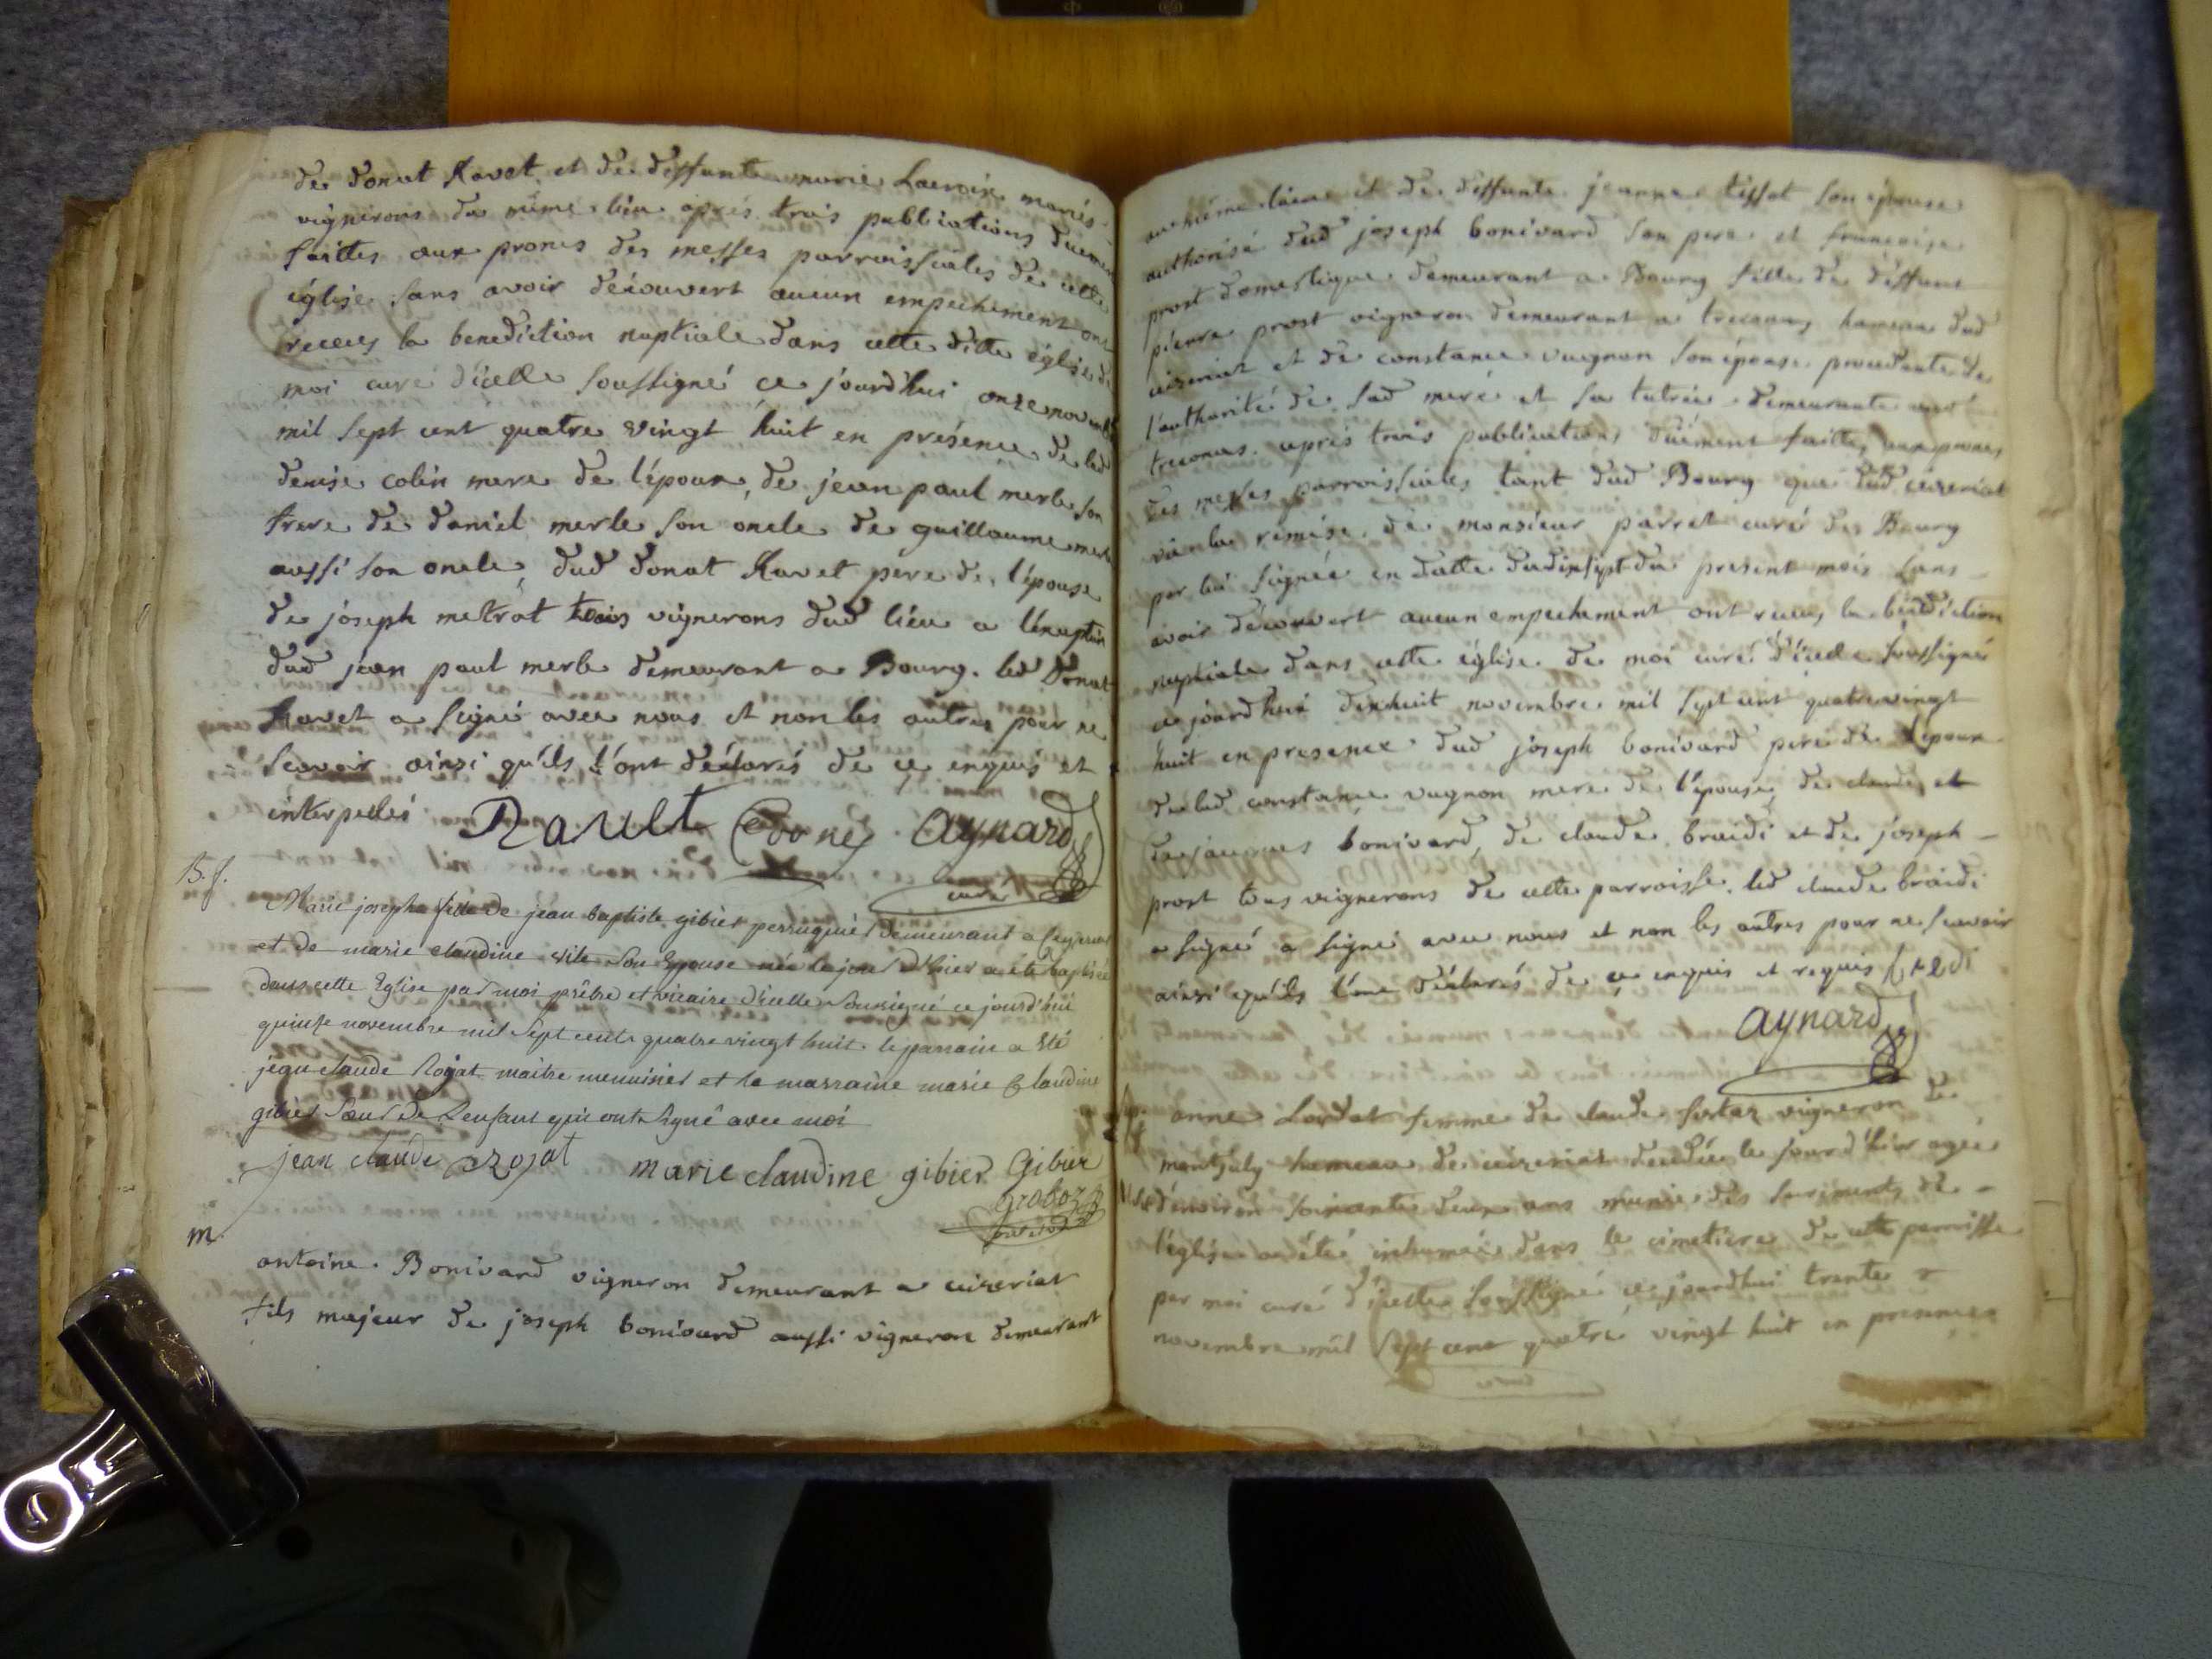 de donat Ravet et de deffunte marie Lacroix mariés
vignerons du même lieu après trois publications duement
faittes aux prones des messes parroissiales de cette
église sans avoir découvert aucun empechement ont
receus la benediction nuptiale dans cette ditte église de
moi curé d'icelle soussigné ce jourd'hui onze novembre
mil sept cent quatre vingt huit en présence de lad
denise colin mere de l'époux, de jean paul merle son
frere de daniel merle son oncle de guillaume merle
aussi son oncle, dud donat Ravet père de l'épouse
de joseph metrat tous vignerons dud lieu a l'éxception
dud jean paul merle demeurant a Bourg. led Donat
Ravet a signé avec nous et non les autres pour ne
scavoir ainsi qu'ils l'ont déclarés de ce enquis et
interpellés Ravet donet aynard
curé
B. f.
Marie josephe fille de jean baptiste gibier perruquier demeurant a Ceyzeriat
et de marie claudine vite son Epouse née le jour d'hier a été baptisée
dans cette Eglise par moi prêtre et vicaire d'icelle soussigné ce jourd'hui
quinze novembre mil sept cent quatre vingt huit le parrain a été
jean claude Rojat maitre menuisier et la marraine marie Claudine
gibier sœur de l'enfant qui ont signé avec moi
jean claude rojat marie claudine gibier Gibier
groboz
m.
antoine Bonivard vigneron demeurant a ceizeriat
fils majeur de joseph bonivard aussi vigneron demeurant
au même lieu et de deffunte jeanne tissot son épouse
authorisé dud joseph bonivard son pere et francoise
prost domestique demeurant a Bourg fille de deffunt
pierre prost vigneron demeurant a treconas hameau dud
ceizeriat et de constance vuagnon son épouse procedante de
l'authorité de sad mere et sa tutrice demeurante aud
treconas. après trois publications duement faittes aux prones
des messes parroissiales tant dud Bourg que dud ceizeriat
vü la remise de monsieur parret curé de Bourg
par lui signée en datte du dixsept du present mois sans
avoir découvert aucun empechement ont receus la bénédiction
nuptiale dans cette église de moi curé d'icelle soussigné
ce jourd'hui dixhuit novembre mil sept cent quatre vingt
huit en presence dud joseph bonivard pere de l'époux
de lad constance vuagnon mere de l'épouse, de claude et
de jacques bonivard, de claude braidi et de joseph
prost tous vignerons de cette parroisse. led claude braidi
a signé a signé avec nous et non les autres pour ne scavoir
ainsi qu'ils l'ont déclarés de ce enquis et requis
aynard
anne Lordat femme de claude vigneron de
montjuly hameau de ceizeriat decedée le jourd'hier agée
d'environ soixante deux ans munie des sacrements de
l'église a été inhumée dans le cimetiere de cette parroisse
par moi curé d'icelle soussigné ce jourdhui trente
novembre mil sept cent quatre vingt huit en presences